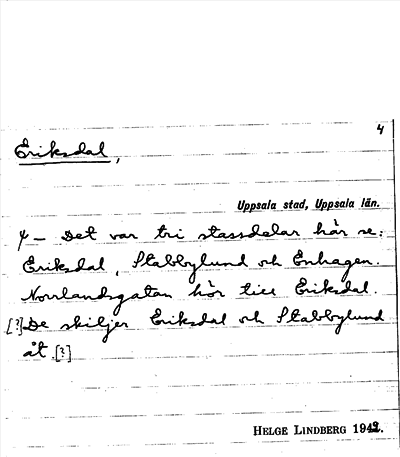 4
Eriksdal,
Uppsala stad, Uppsala län.
4 – Det var tri stassdelar här se:
Eriksdal, Stabbylund och Enhagen.
Norrlandsgatan hör till Eriksdal.
[?] De skiljer Eriksdal och Stabbylund
åt. [?]
HELGE LINDBERG 1949.